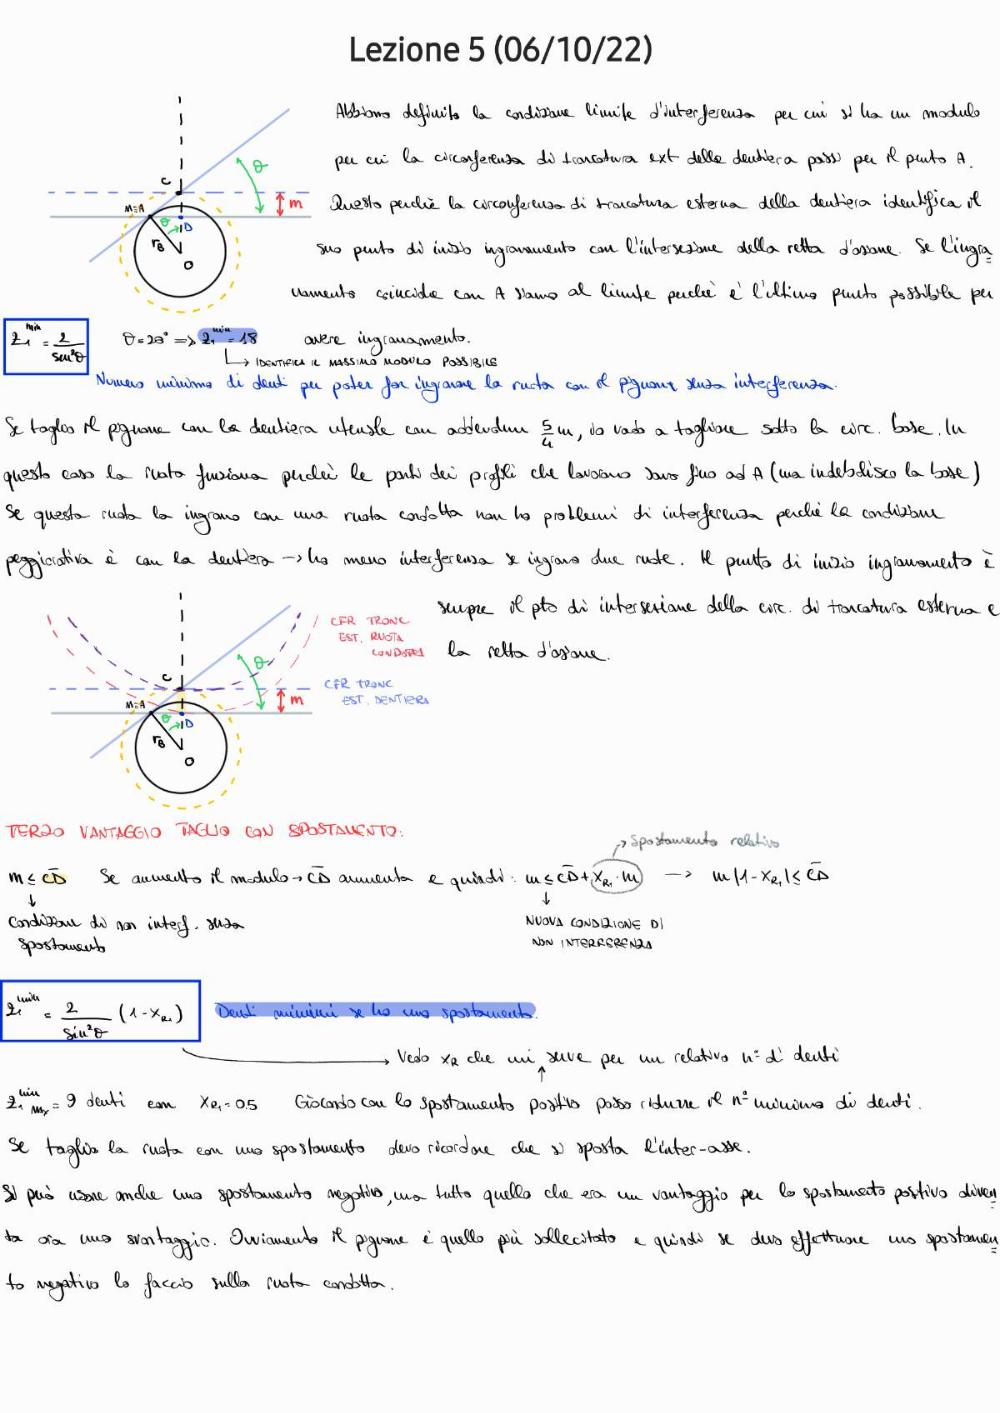 Lezione 5 (06/10/22)
Abbiamo definito la condizione limite d'interferenza per cui si ha un modulo
per cui la circonferenza di troncatura ext della dentiera passi per il punto A.
Questo perchè la circonferenza di troncatura esterna della dentiera identifica il
suo punto di inizio ingranamento con l'intersezione della retta d'azione. Se l'ingra
namento coincide con A siamo al limite perchè è l'ultimo punto possibile per
avere ingranamento.
C
θ
m
M≡A
θ
D
rB
O
z1 min = 2 / sin²θ
θ=20° => z1 min = 18
IDENTIFICA IL MASSIMO MODULO POSSIBILE
Numero minimo di denti per poter far ingranare la ruota con il pignone senza interferenza.
Se taglio il pignone con la dentiera utensile con addendum 5/4 m, io vado a tagliare sotto la circ. base. In
questo caso la ruota funziona perchè le parti dei profili che lavorano sono fino ad A (ma indebolisco la base)
Se questa ruota la ingrano con una ruota condotta non ho problemi di interferenza perchè la condizione
peggiorativa è con la dentiera → ho meno interferenza se ingrano due ruote. Il punto di inizio ingranamento è
sempre il pto di intersezione della circ. di troncatura esterna e
la retta d'azione.
CFR TRONC
EST. RUOTA
CONDOTTA
CFR TRONC
EST. DENTIERA
C
θ
m
M≡A
θ
D
rB
O
TERZO VANTAGGIO TAGLIO CON SPOSTAMENTO:
Spostamento relativo
m ≤ CD Se aumento il modulo → CD aumenta e quindi: m ≤ CD + XR1·m → m(1-XR1) ≤ CD
Condizione di non interf. senza
spostamento
NUOVA CONDIZIONE DI
NON INTERFERENZA
z1 min = 2 / sin²θ (1-XR1)
Denti minimi se ho uno spostamento.
Vedo XR che mi serve per un relativo n° di denti
z1 min = 9 denti con XR1=0.5 Giocando con lo spostamento positivo posso ridurre il n° minimo di denti.
Se taglio la ruota con uno spostamento devo ricordare che si sposta l'inter-asse.
Si può usare anche uno spostamento negativo, ma tutto quello che era un vantaggio per lo spostamento positivo diven
ta ora uno svantaggio. Ovviamente il pignone è quello più sollecitato e quindi se devo effettuare uno spostamen
to negativo lo faccio sulla ruota condotta.